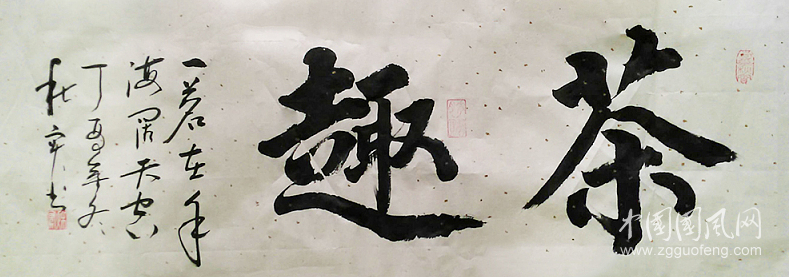 茶趣
一茗在手
海阔天空
丁酉年冬
秋书
中国国风网
www.zgguofeng.com